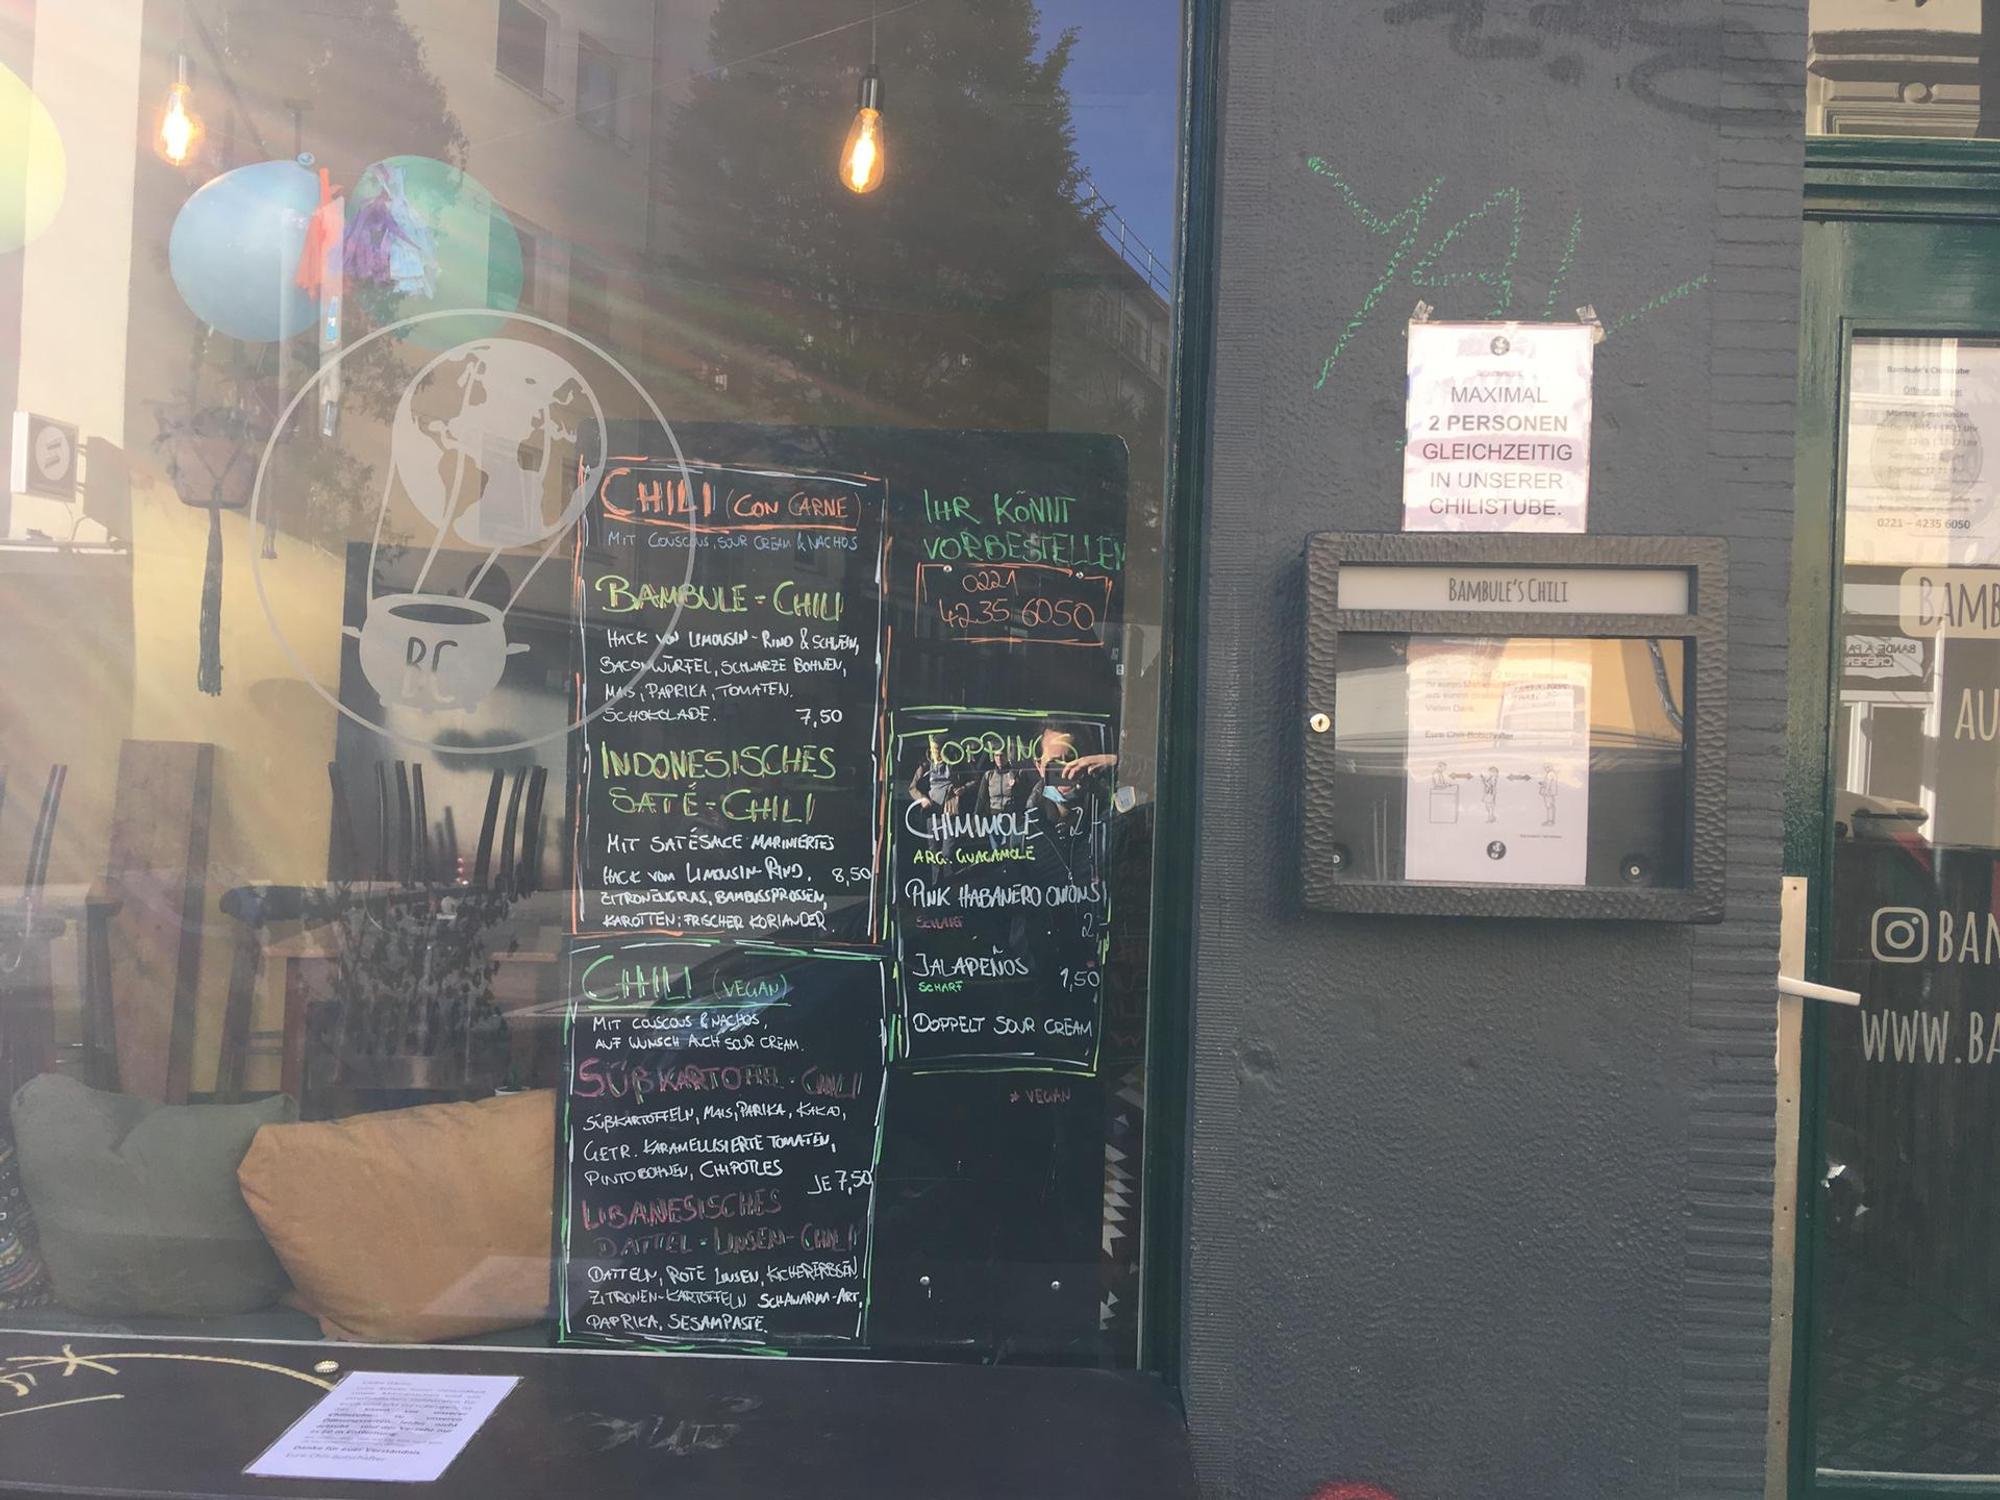 BC
CHILI (CON CARNE)
MIT COUSCOUS, SOUR CREAM & NACHOS
BAMBULE-CHILI
HACK VON LIMOUSIN-RIND & SCHWEIN,
BACONWÜRFEL, SCHWARZE BOHNEN,
MAIS, PAPRIKA, TOMATEN.
SCHOKOLADE. 7,50
INDONESISCHES
SATÉ-CHILI
MIT SATÉSAUCE MARINIERTES
HACK VOM LIMOUSIN RIND, 8,50
ZITRONENGRAS, BAMBUSSPROSSEN,
KAROTTEN, FRISCHER KORIANDER.
CHILI (VEGAN)
MIT COUSCOUS & NACHOS,
AUF WUNSCH AUCH SOUR CREAM.
SÜßKARTOFFEL-CHILI
SÜßKARTOFFELN, MAIS, PARIKA, KAKAO,
GETR. KARAMELLISIERTE TOMATEN,
PINTOBOHNEN, CHIPOTLES
JE 7,50
LIBANESISCHES
DATTEL-LINSEN-CHILI
DATTELN, ROTE LINSEN, KICHERERBSEN
ZITRONEN-KARTOFFELN SCHAWARMA-ART,
PAPRIKA, SESAMPASTE.
IHR KÖNNT
VORBESTELLEN
0221
4235 6050
TOPPINGS
CHIMIMOLE 2,-
ARG. GUACAMOLE
PINK HABANERO ONIONS
SCHARF 2,-
JALAPEÑOS 1,50
SCHARF
DOPPELT SOUR CREAM
* VEGAN
MAXIMAL
2 PERSONEN
GLEICHZEITIG
IN UNSERER
CHILISTUBE.
BAMBULE'S CHILI
Vielen Dank
Eure Chili-Botschafter
Bambule's Chilistube
0221 – 4235 6050
BAMB
AU
BAN
WWW.BA
Danke für euer Verständnis
Eure Chili-Botschafter